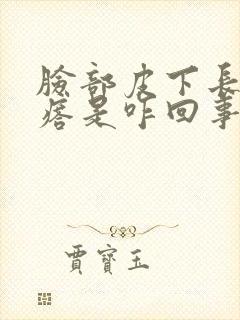 臉部皮下長
痞是咋回事
賈寶玉